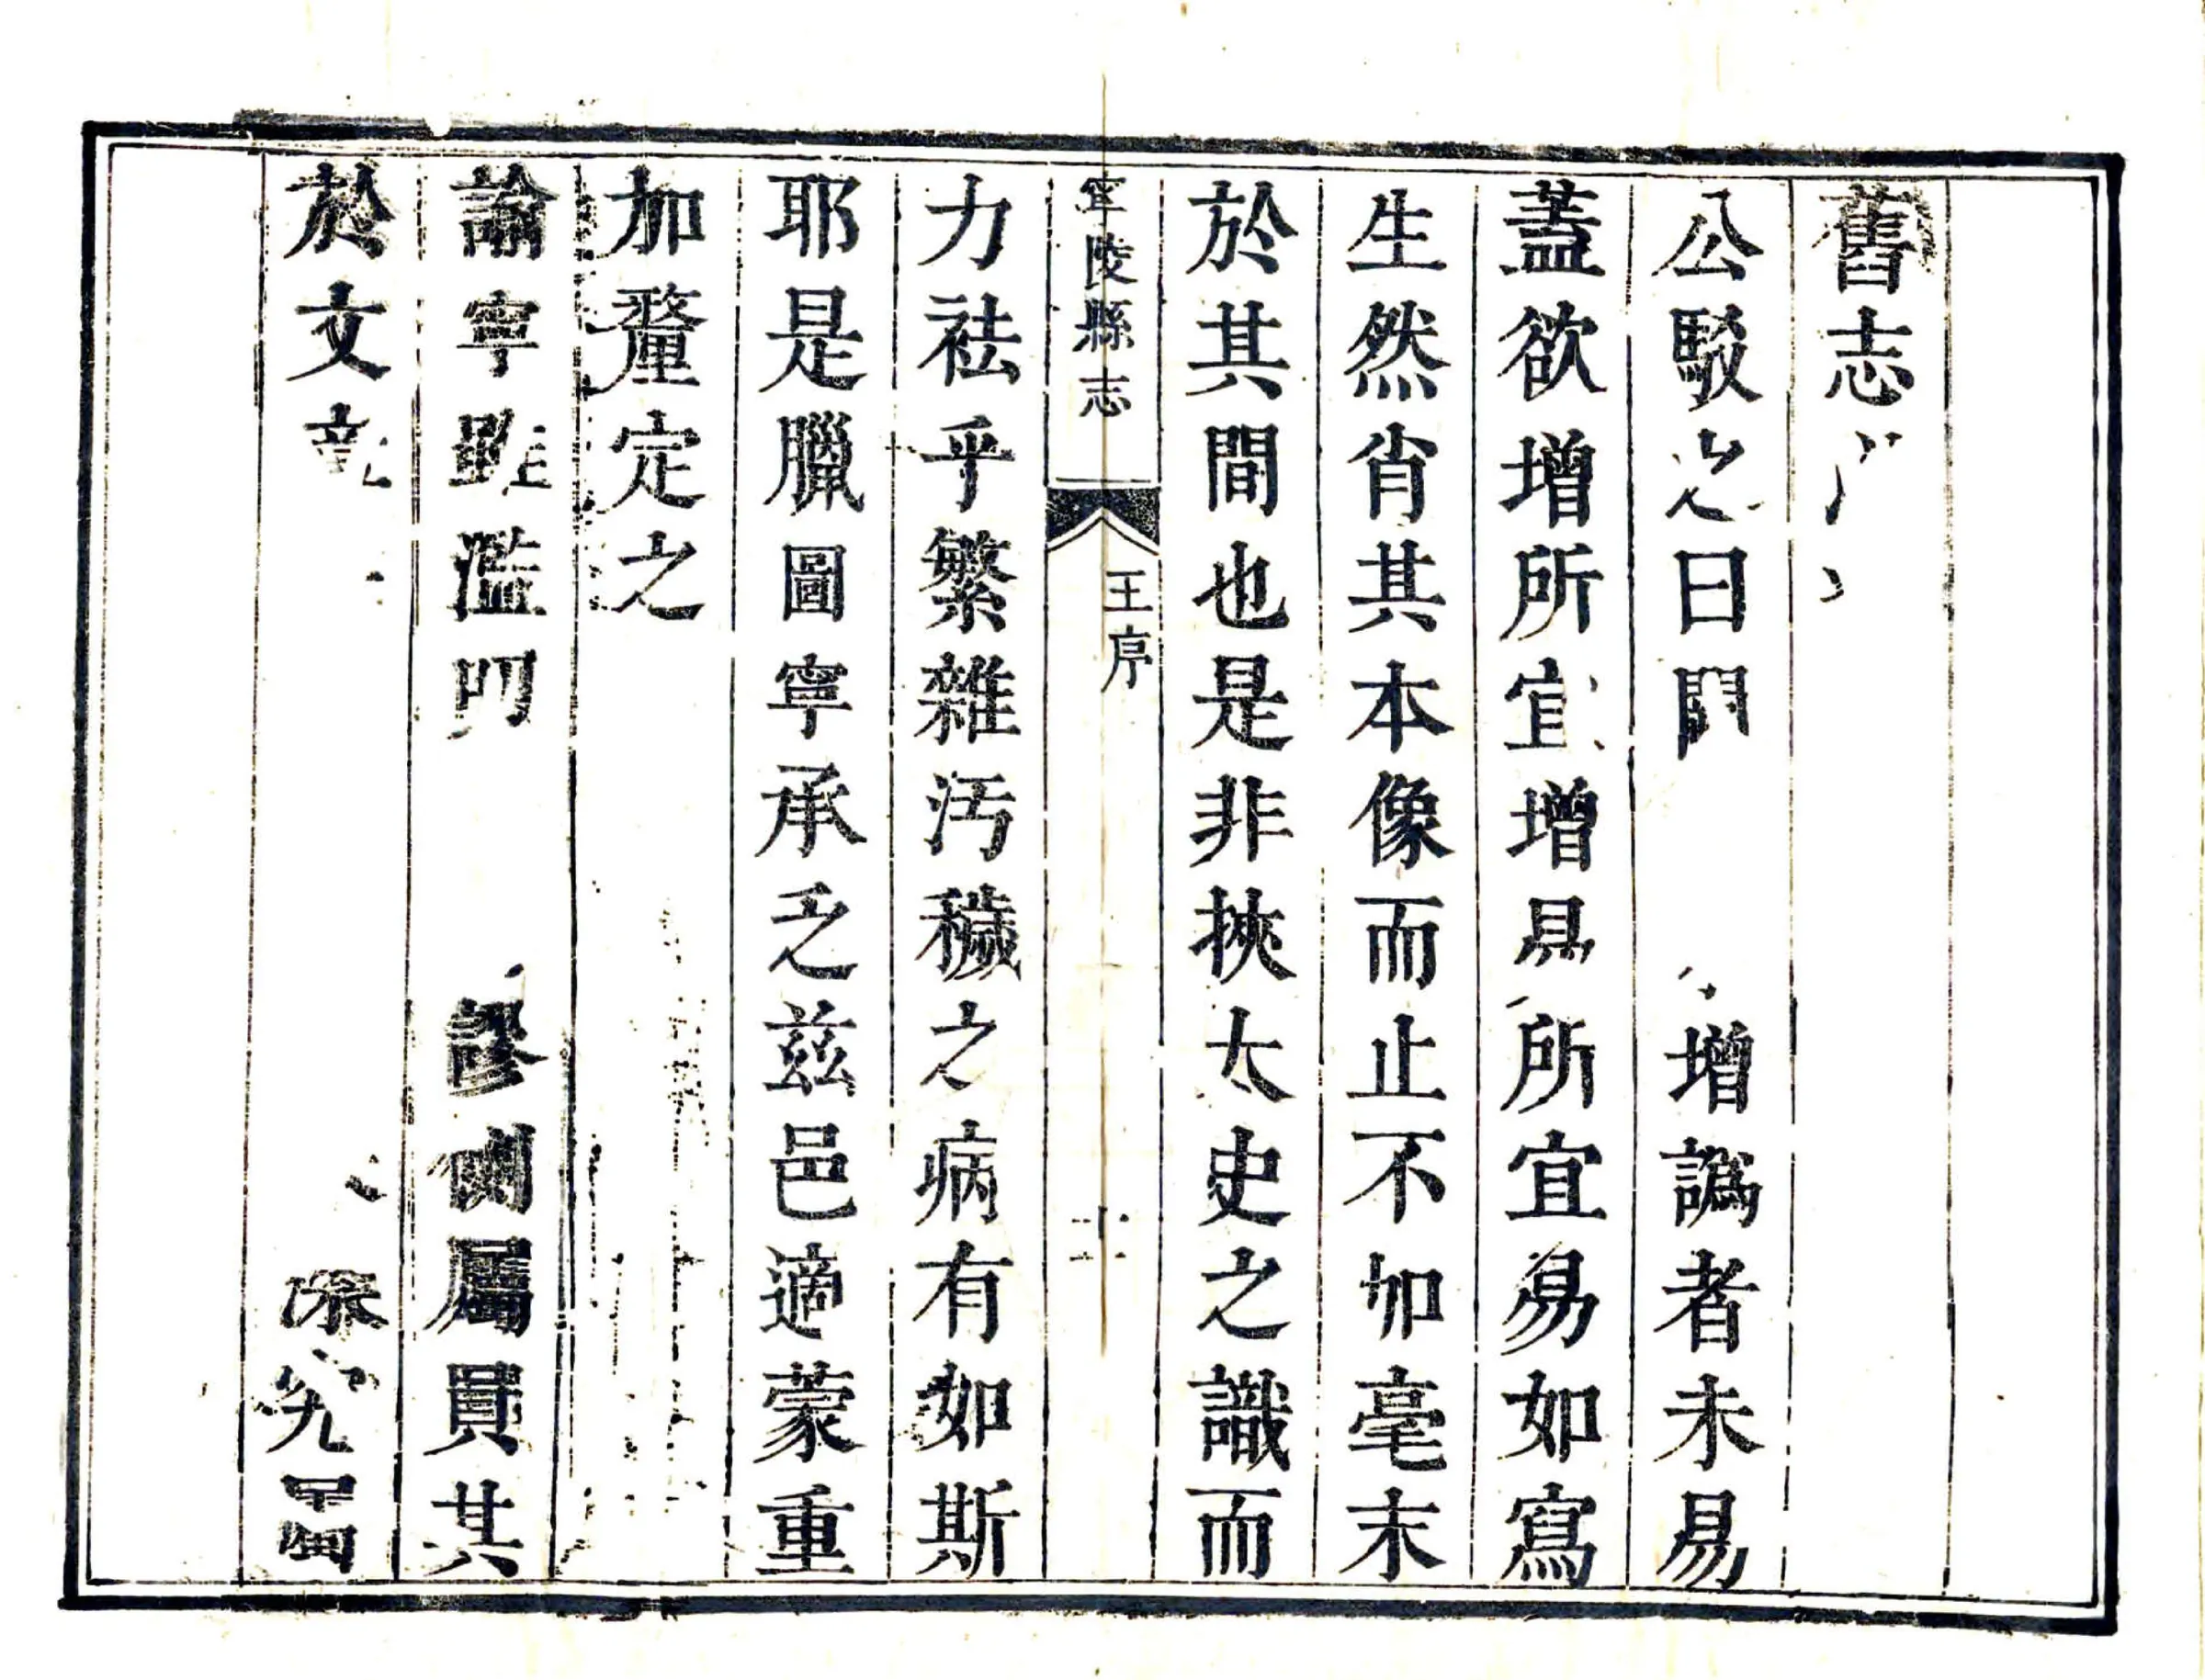 舊志
公駁之曰閒增譌者未易
蓋欲增所宜增易所宜易如寫
生然肖其本像而止不加毫末
於其間也是非挾太史之識而
寧陵縣志 王序 十二
力袪乎繁雜汚穢之病有如斯
耶是臘圖寧承乏兹邑適蒙重
加釐定之
諭寧雖濫叨謬側屬員其
於文深究